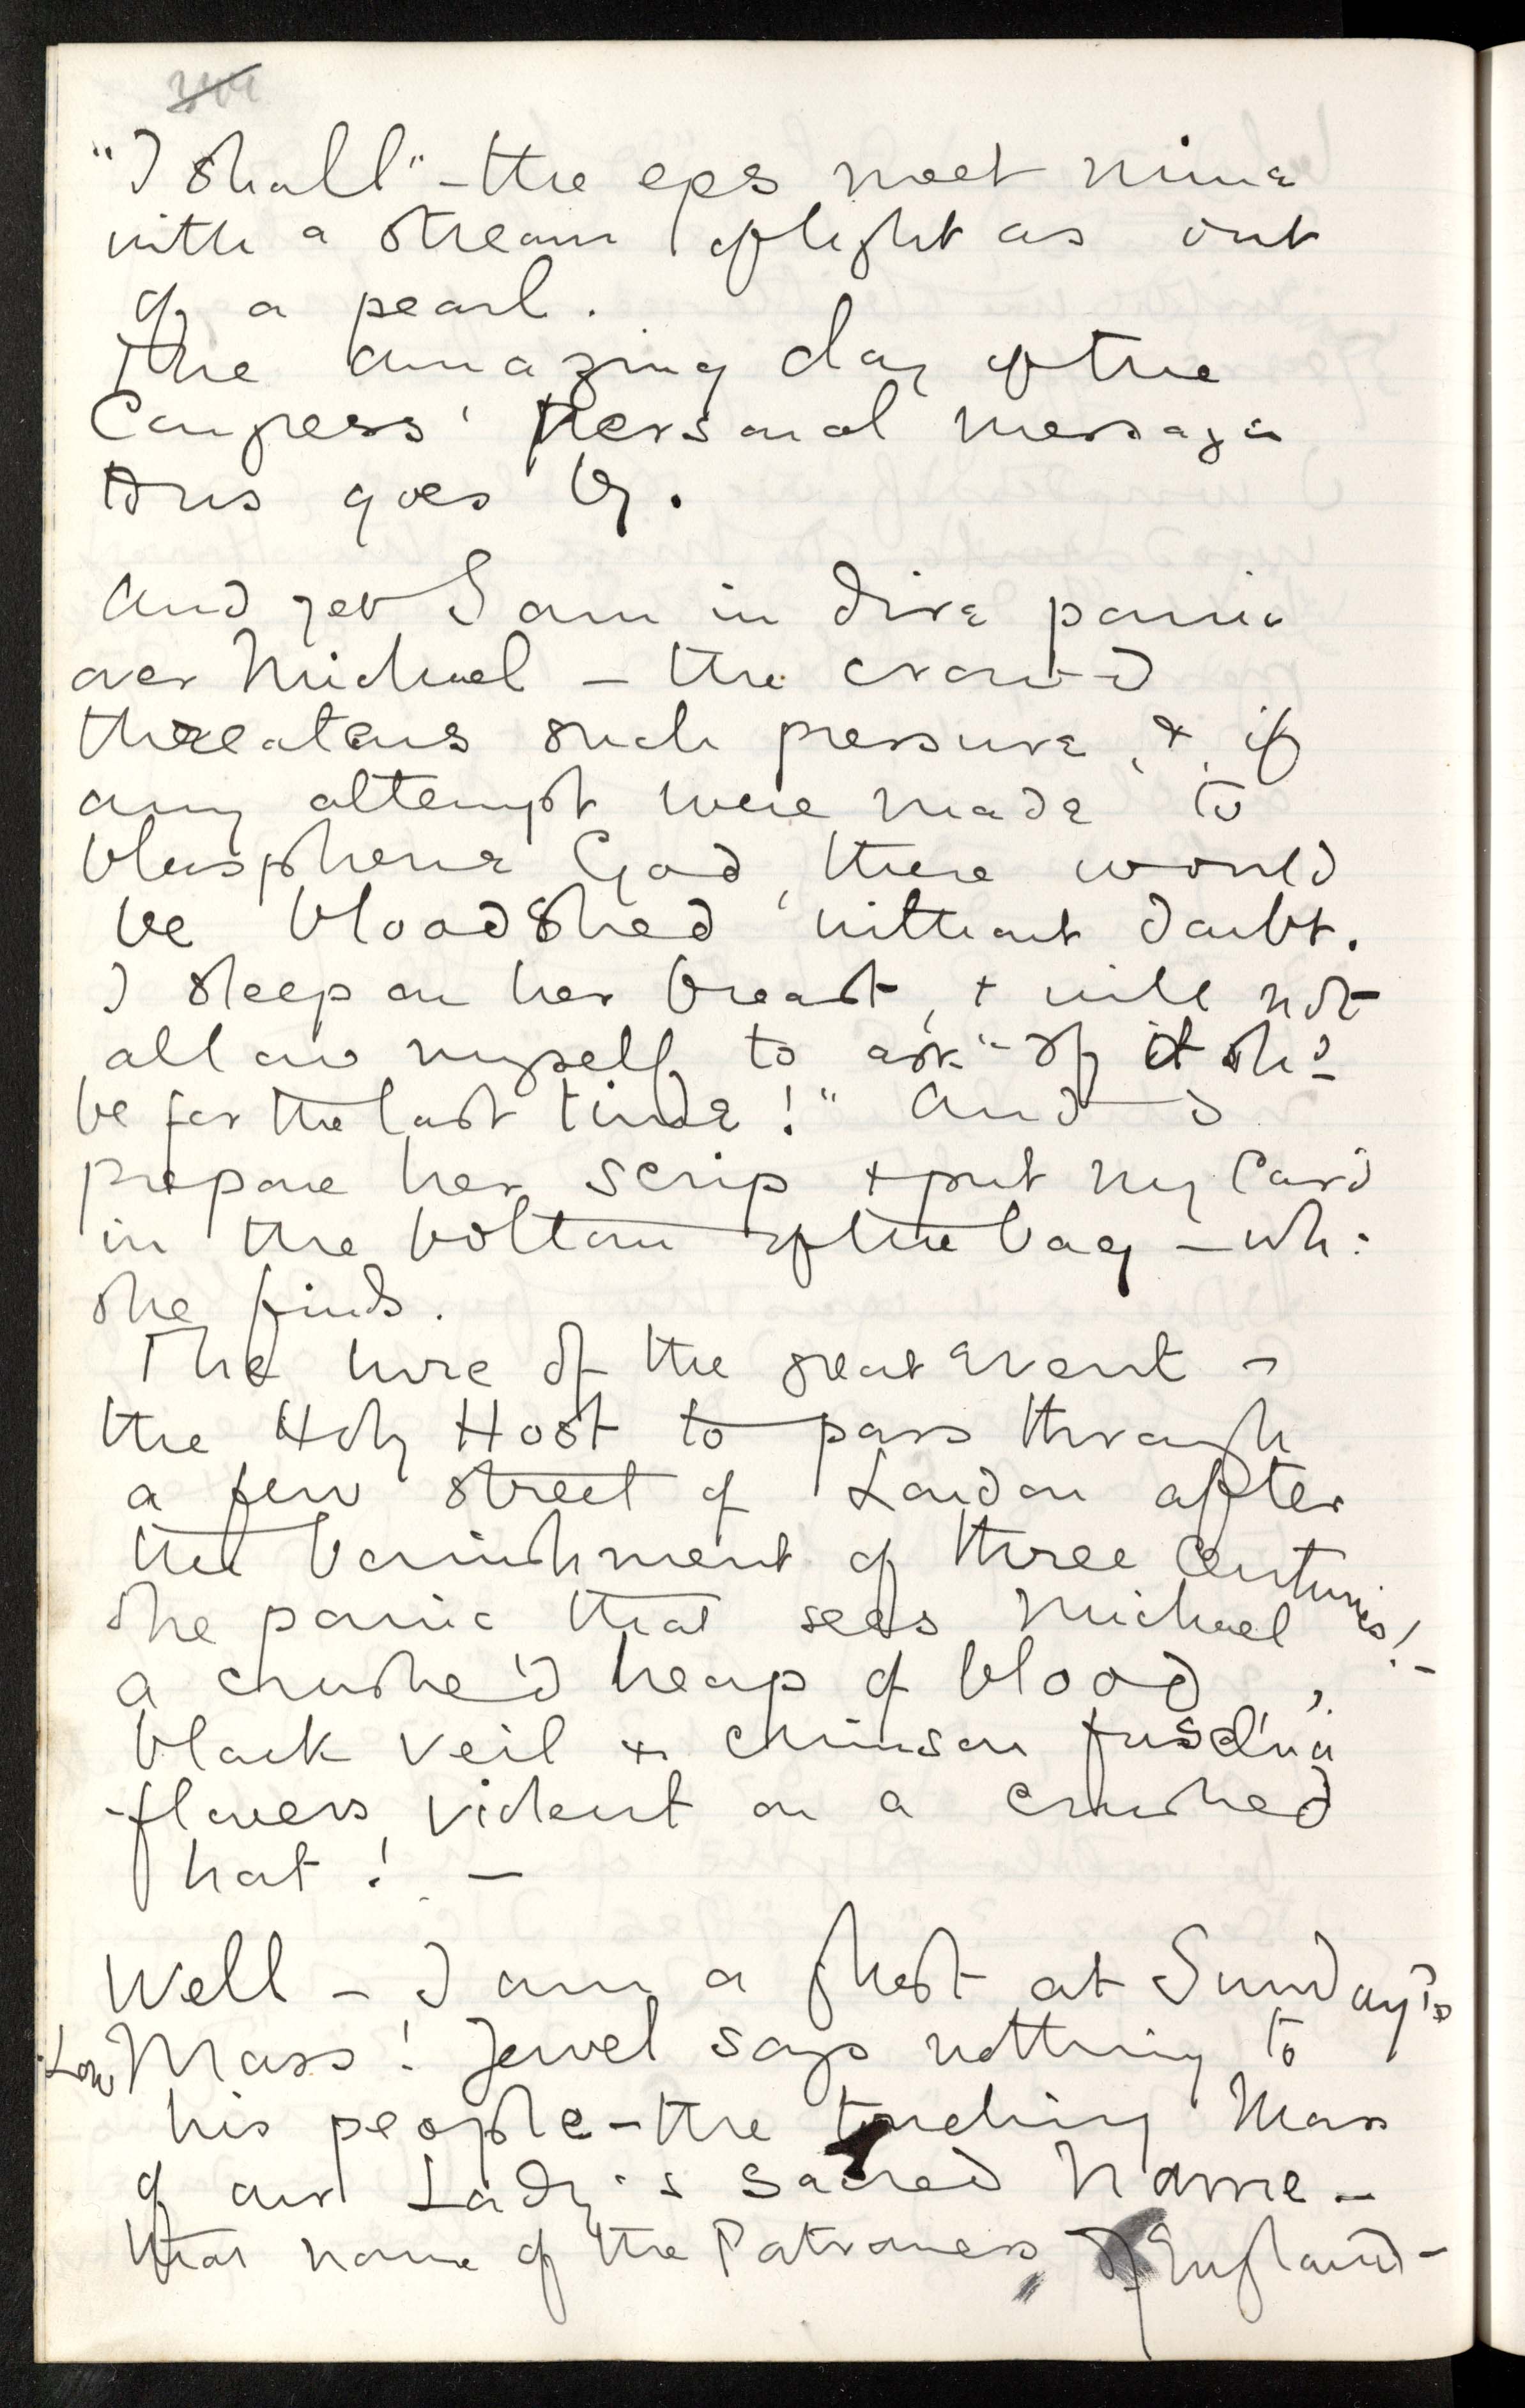 "I shall" – the eyes meet mine
with a stream of light as out
of a pearl.
The amazing day of the
Congress' Personal message
thus goes by.
And yet I am in dire panic
over Michael – the crowd
threatens such pressure, &, if
any attempt were made to
blaspheme God, there would
be bloodshed without doubt.
I sleep on her breast, & will not
allow myself to ask "If it shd
be for the last time!" And I
prepare her scrip & put my Card
in the bottom of the bag – wh:
she finds.
The lure of the great event –
the Holy Host to pass through
a few street of London after
the banishment of three Centuries! –
The panic that sees Michael
a crushe'd heap of blood,
black veil & crimson fuschia
-flowers, violent on a crushed
hat! –
Well – I am a ghost at Sunday's
Low Mass! Jewel says nothing to
his people – the touching Mass
of our Lady's Sacred Name –
that name of the Patroness of England –